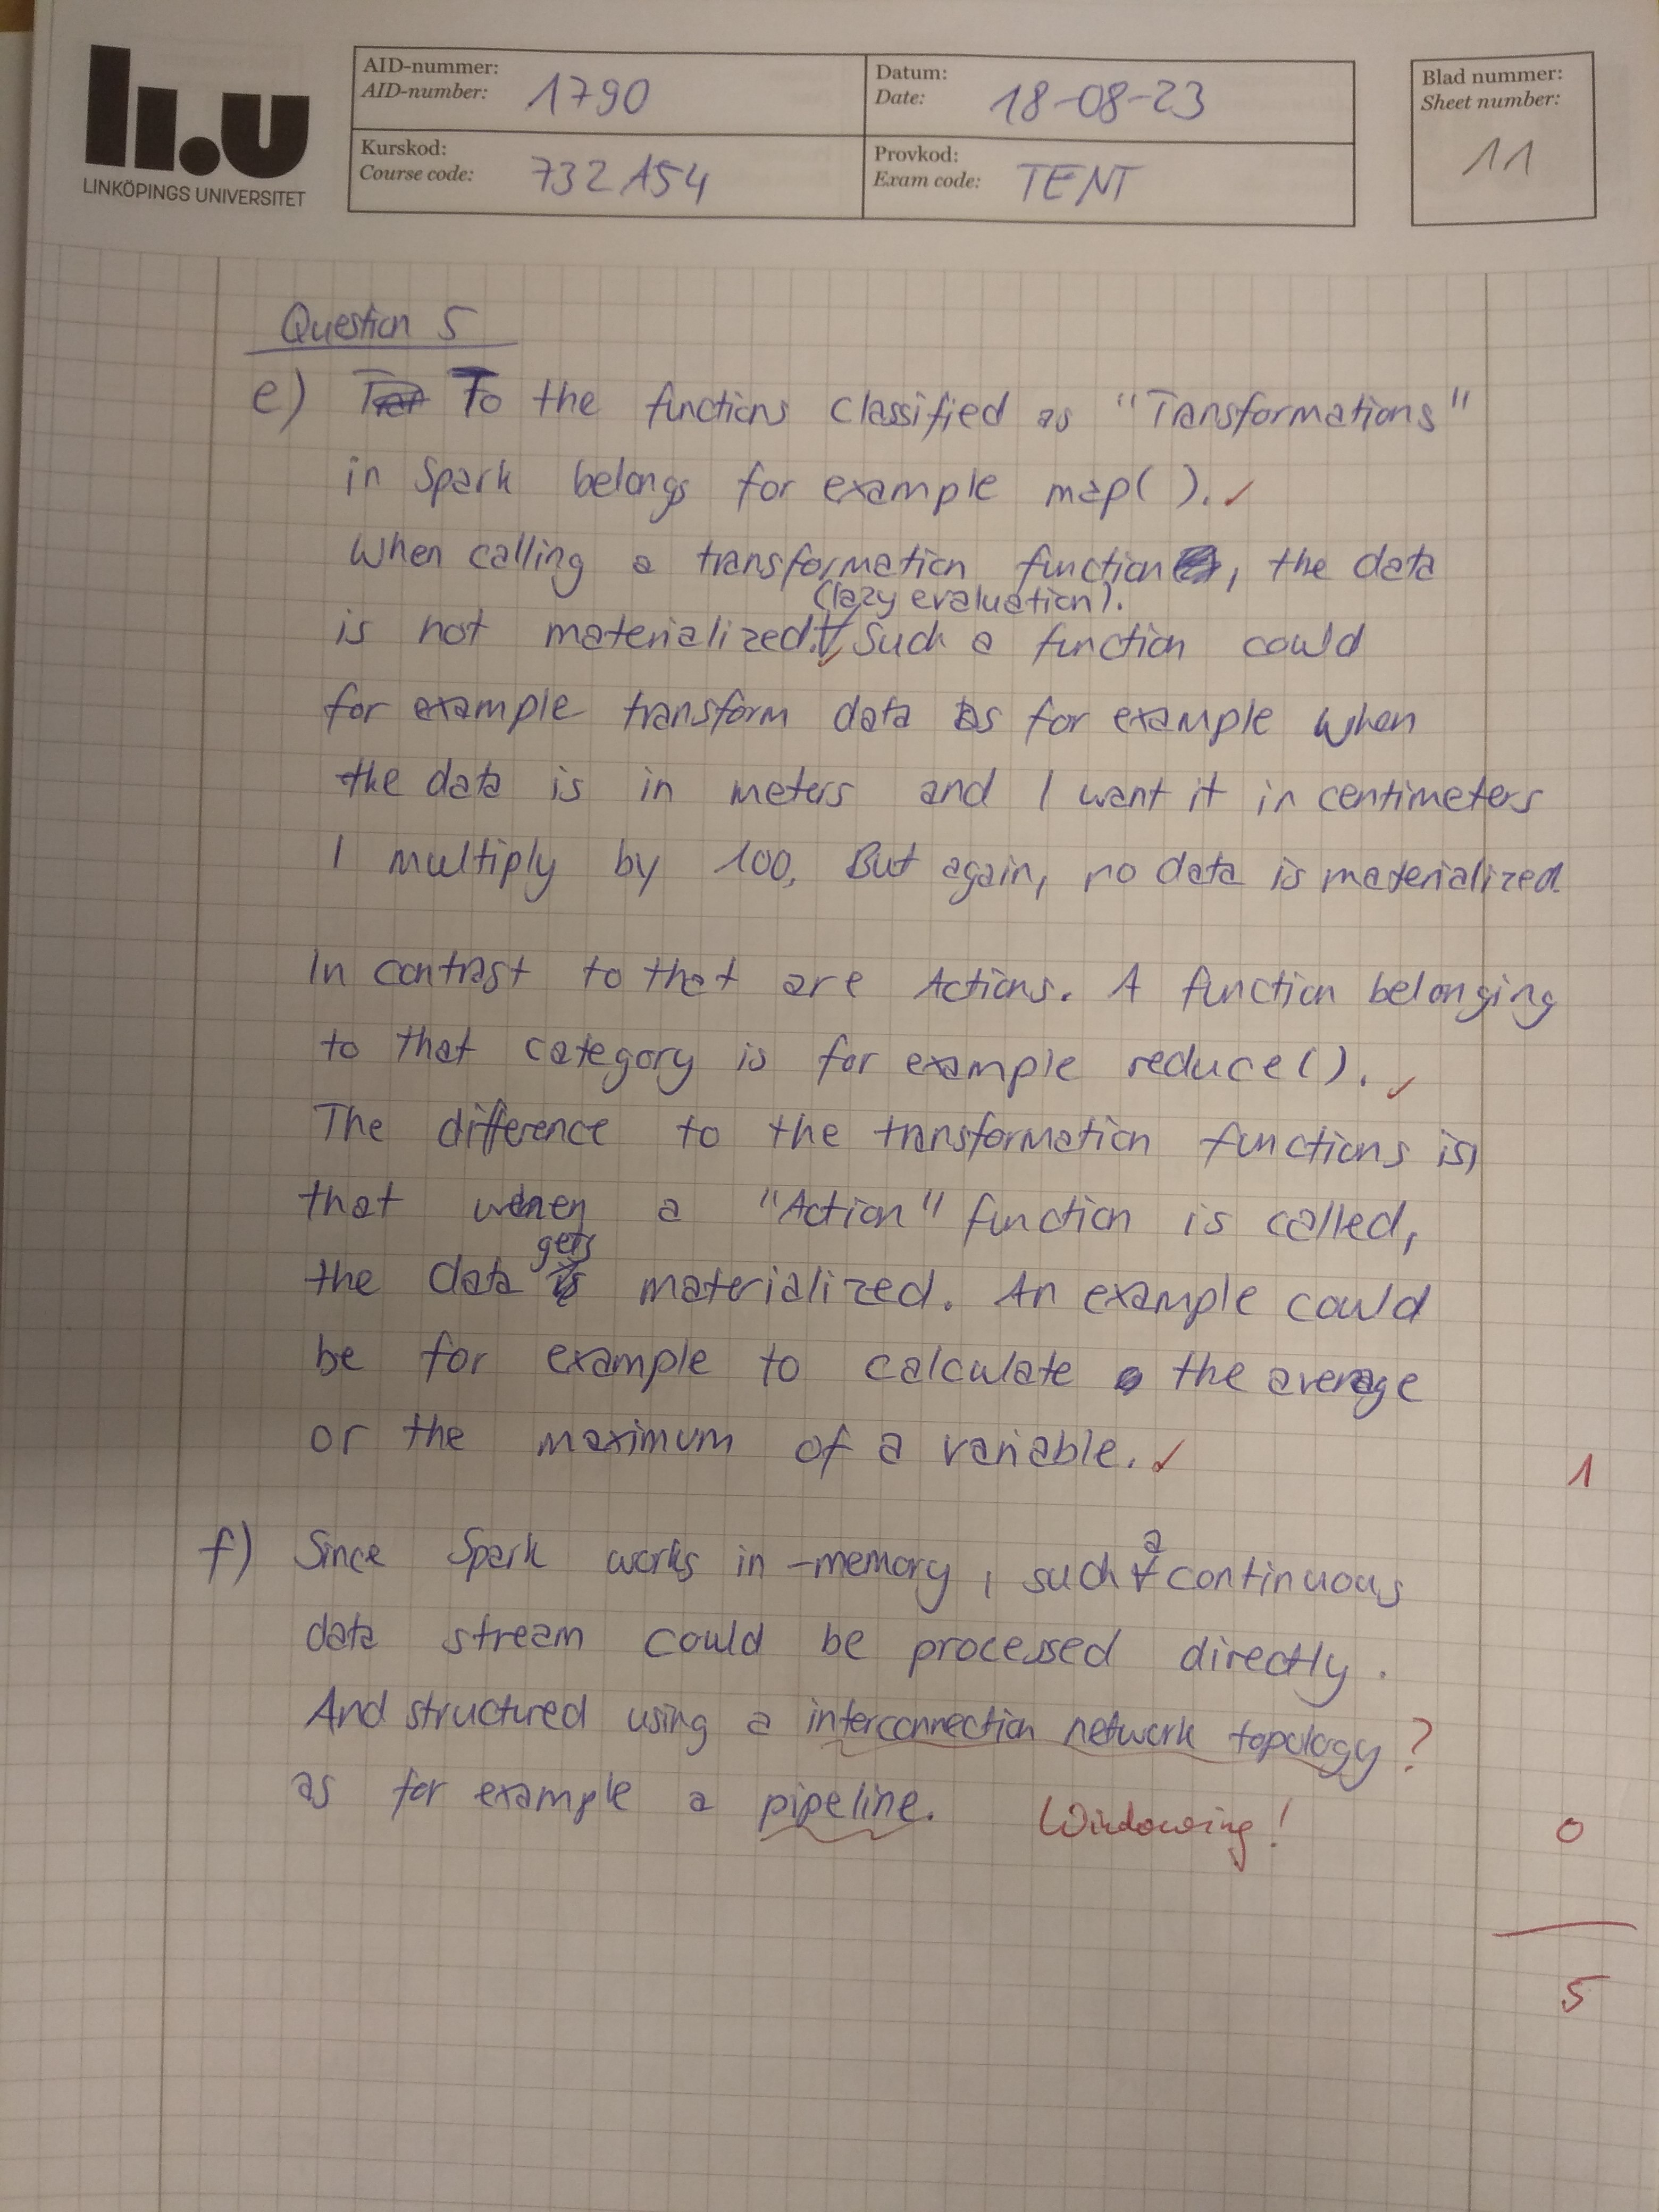 li.u
LINKÖPINGS UNIVERSITET
AID-nummer:
AID-number: 1790
Datum:
Date: 18-08-23
Kurskod:
Course code: 732A54
Provkod:
Exam code: TENT
Blad nummer:
Sheet number:
11
Question 5
e) To the functions classified as "Transformations"
in Spark belongs for example map( ). ✓
When calling a transformation function, the data
(lazy evaluation).
is not materialized. ✓ Such a function could
for example transform data as for example when
the data is in meters and I want it in centimeters
I multiply by 100. But again, no data is materialized.
In contrast to that are Actions. A function belonging
to that category is for example reduce(). ✓
The difference to the transformation functions is,
that when a "Action" function is called,
the data gets materialized. An example could
be for example to calculate the average
or the maximum of a variable. ✓
1
f) Since Spark works in-memory, such a continuous
data stream could be processed directly.
And structured using a interconnection network topology ?
as for example a pipeline. Windowing!
0
5